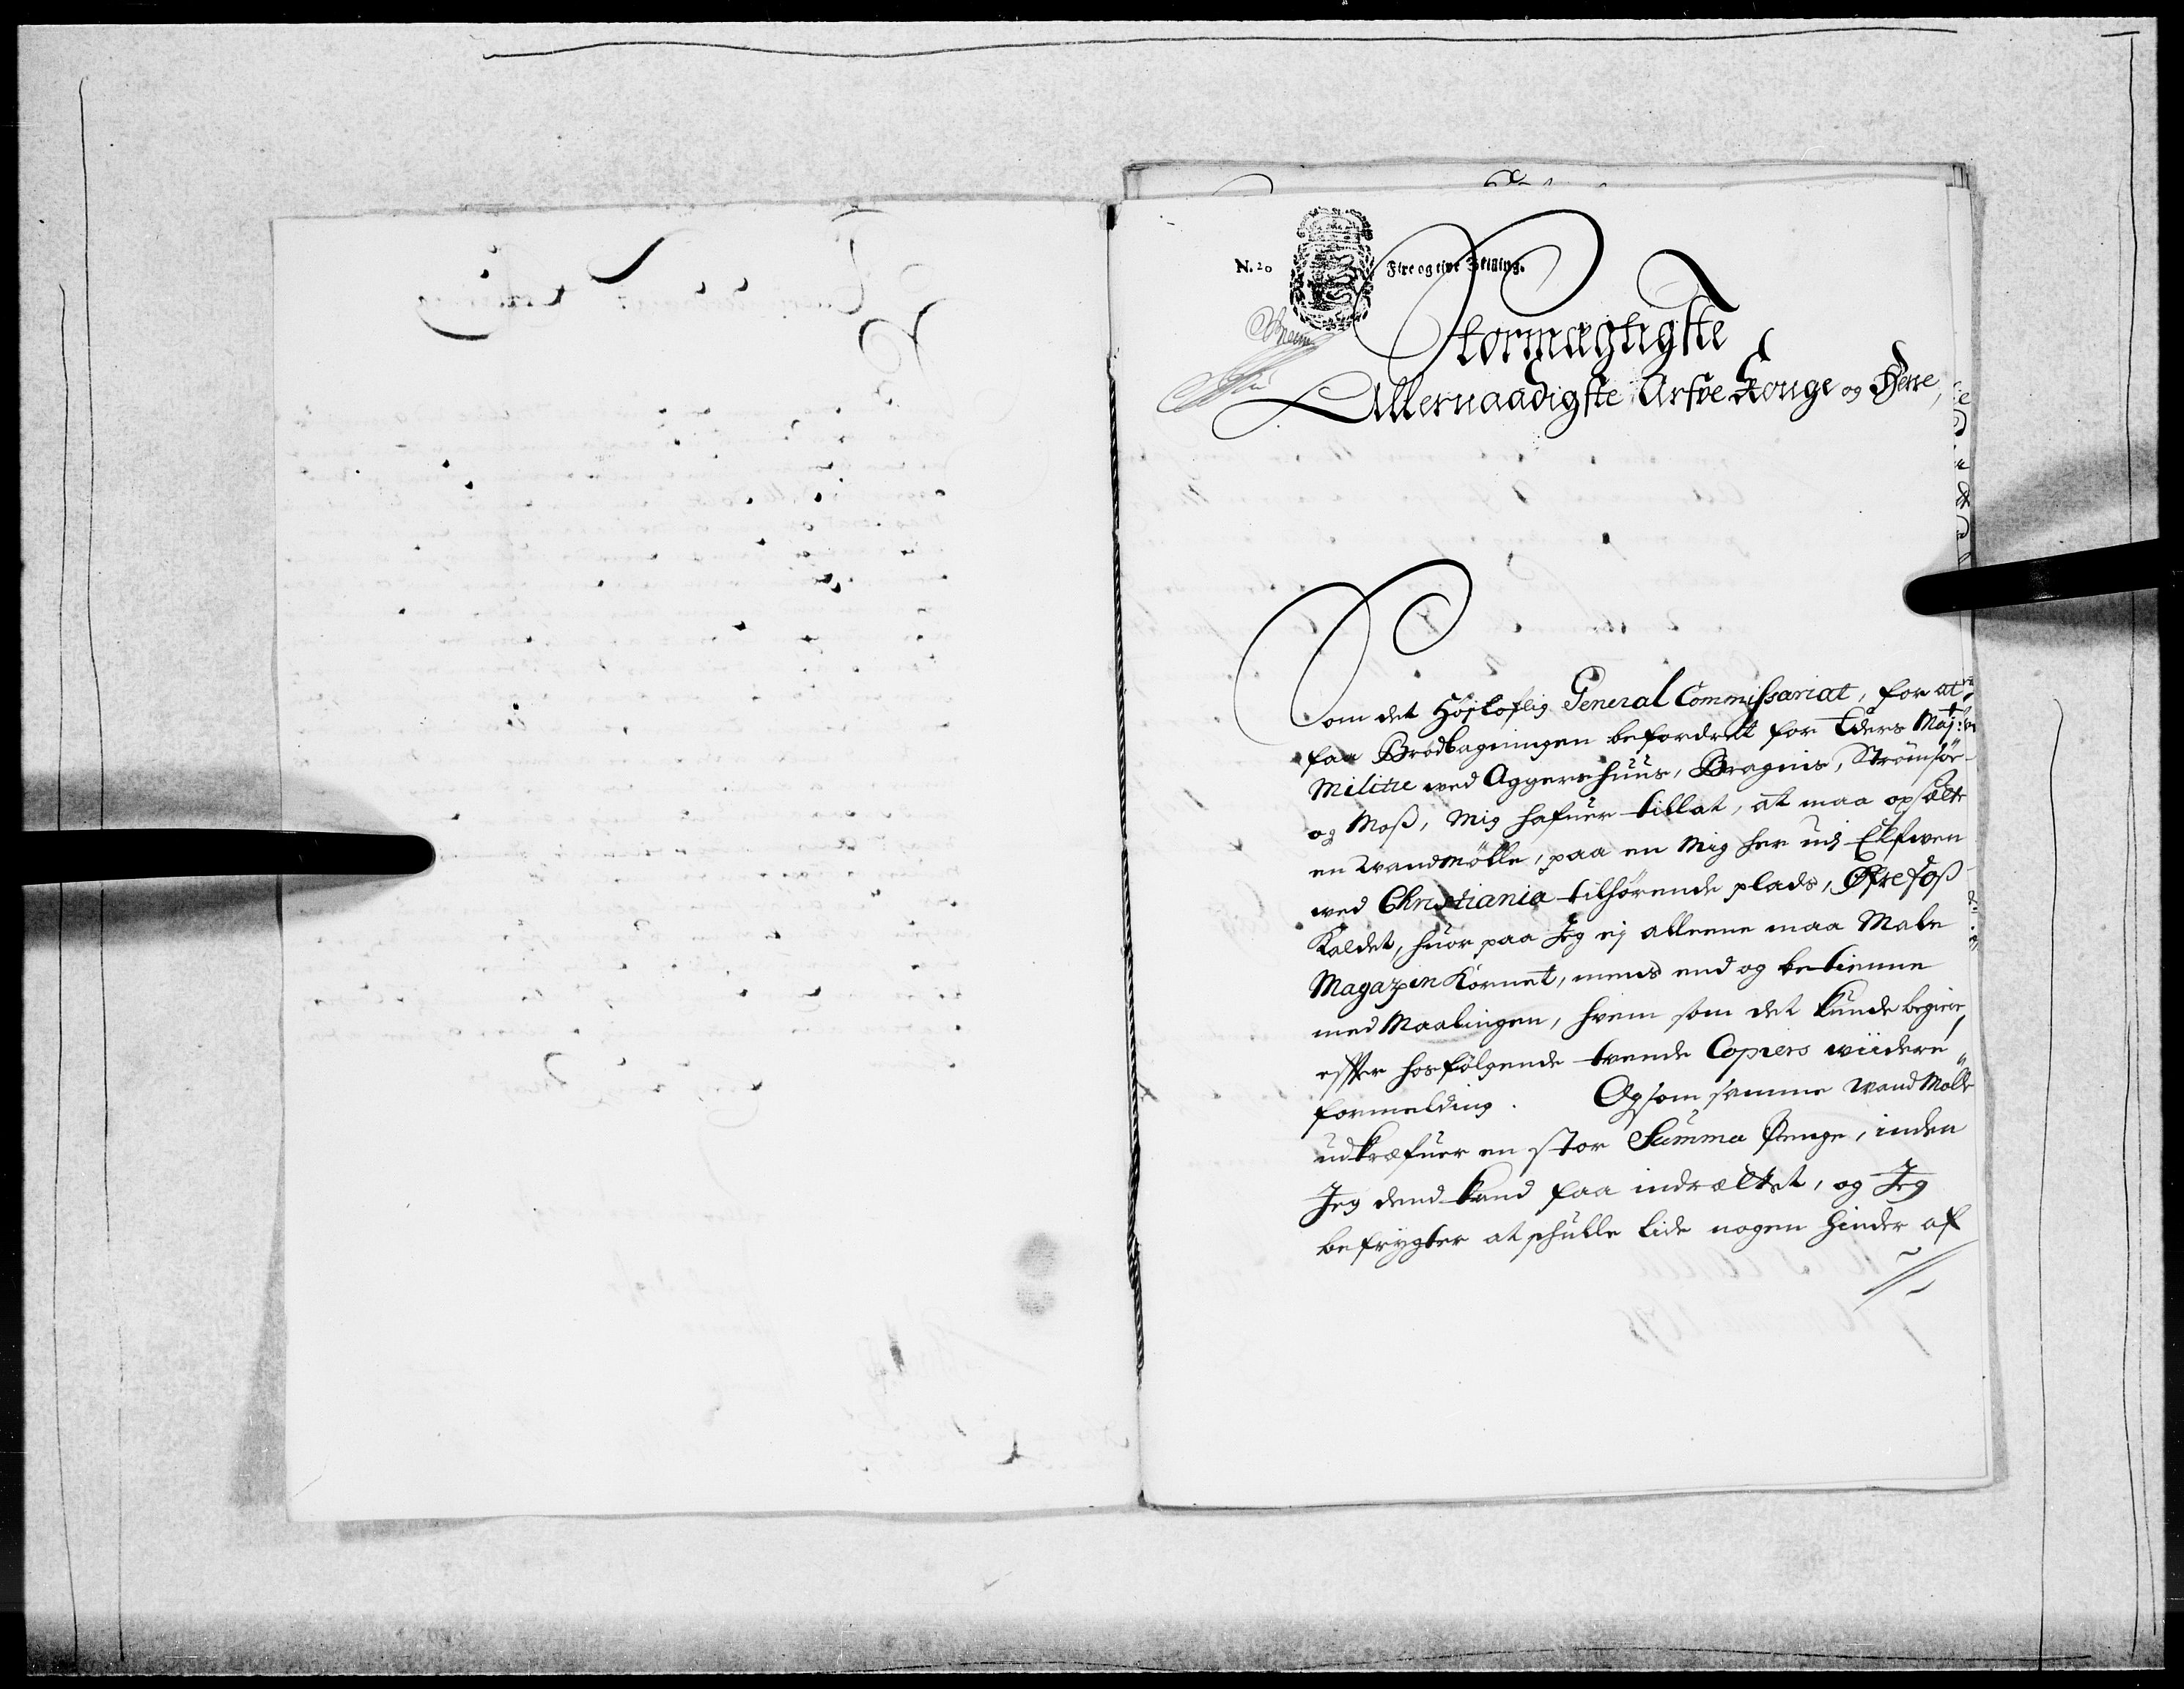 N. 20 Fire og tive Skilling.
Stormægtigste
Allernaadigste Arfve Konge og Herre,
Som det Høyloflig General Commissariat, for at
faa Brødbagningen befordret for Eders Maj:ts
Militie ved Aggershuus, Bragnis, Strømsøe
og Moss, Mig hafuer tillat, at maa opsætte
en Wandmølle, paa en Mig her udj Elfven
ved Christiania tilhørende plads, Øfrefoss
Kaldet, huor paa Jeg ej alleene maa Male
Magazin Kornet, mens end og betienne
med Maalingen, hvem som det kunde begiere,
efter hosfølgende trende Copiers widere
formelding. Og som samme Wand Mølle
udkræfuer en stor Summa Penge, inden
Jeg dend kand faa indrættet, og Jeg
befrygter at schulle lide nogen hinder af